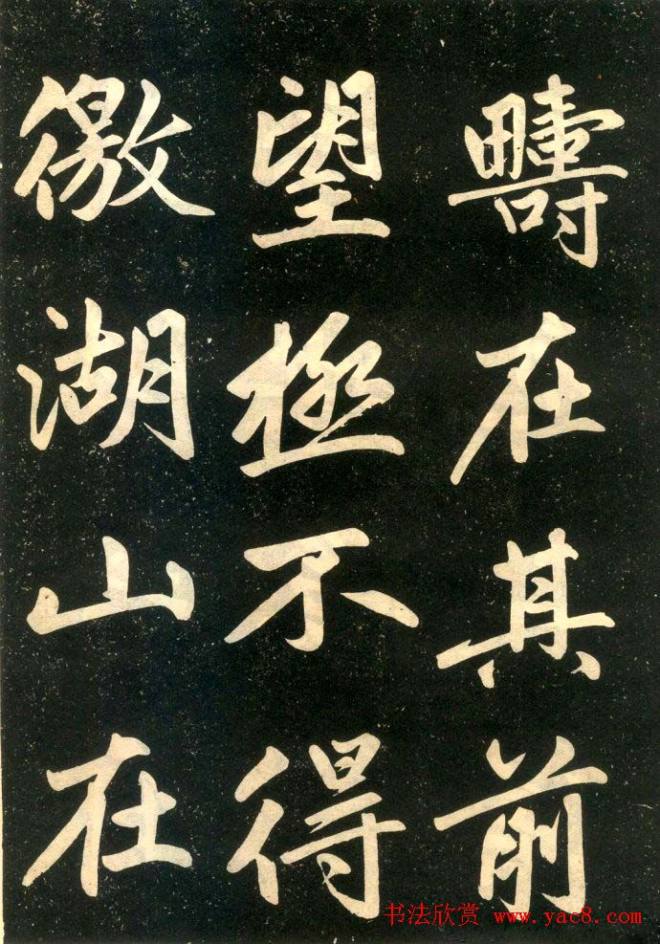 疇在其前
望極不得
徼湖山在
书法欣赏 www.yac8.com